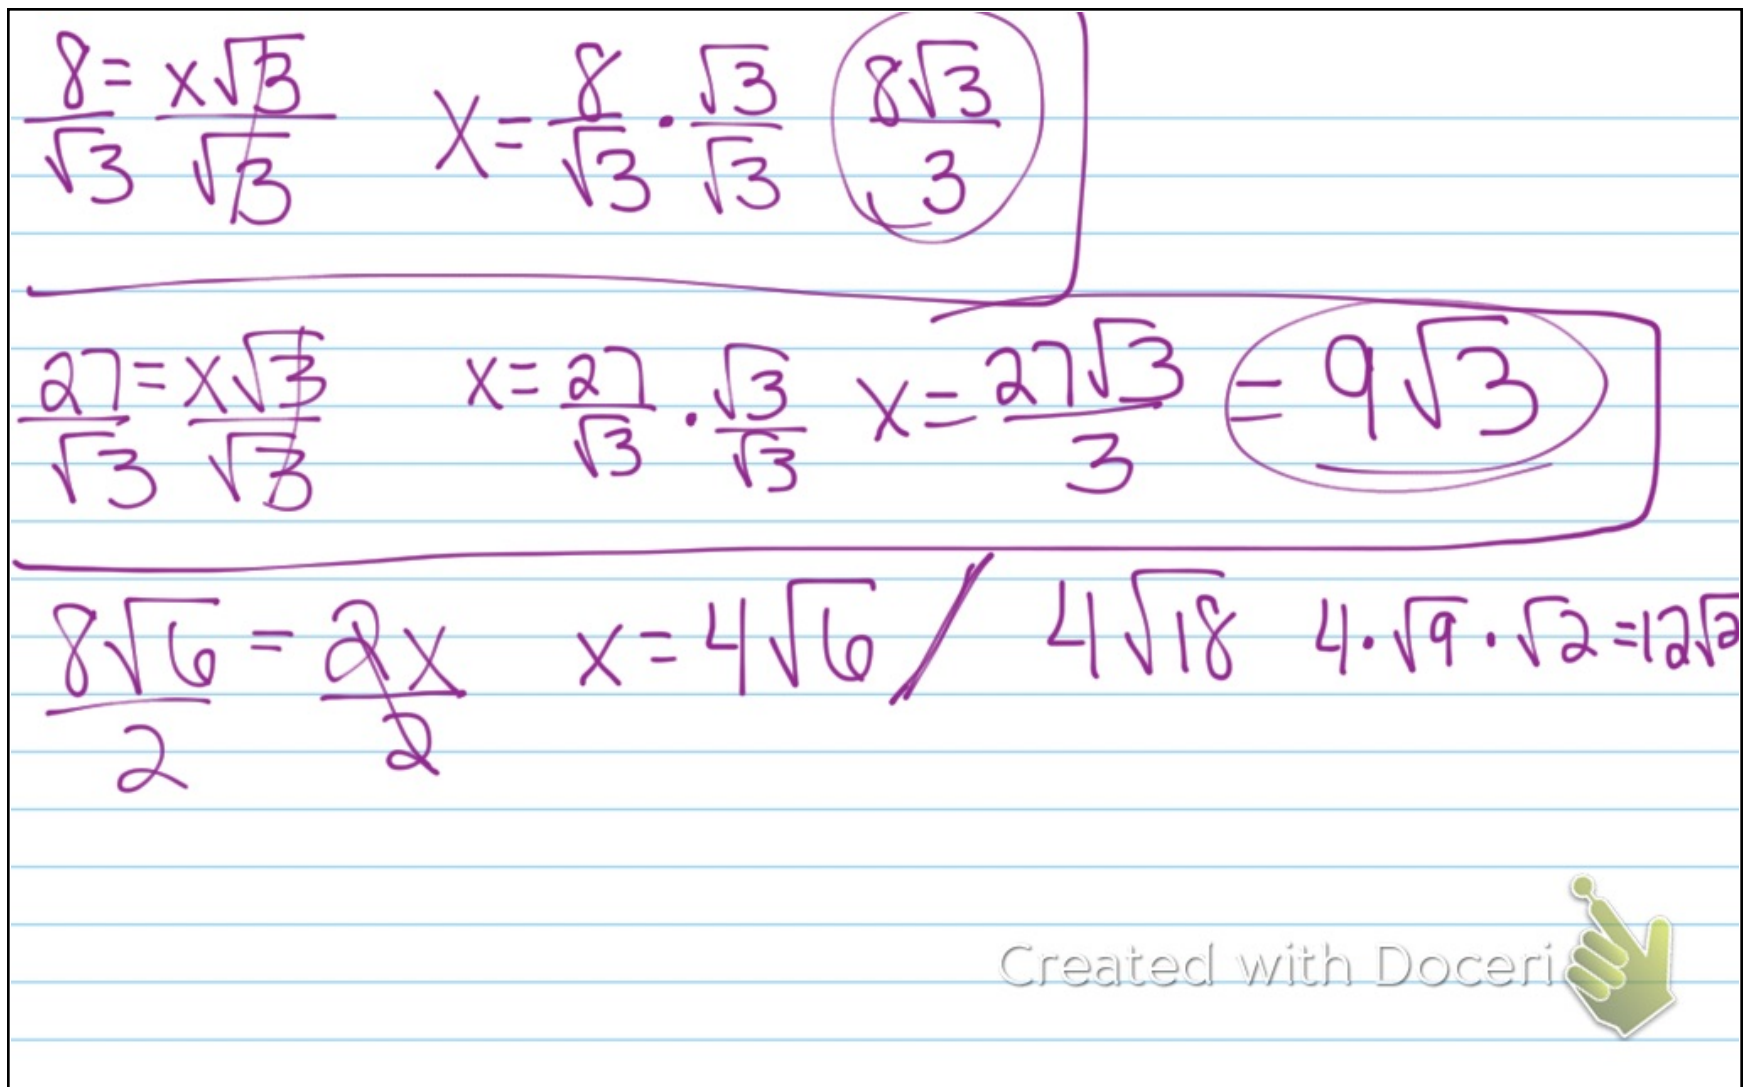 8/√3 = x√3/√3   x = 8/√3 · √3/√3   8√3/3
27/√3 = x√3/√3   x = 27/√3 · √3/√3   x = 27√3/3 = 9√3
8√6/2 = 2x/2   x = 4√6 / 4√18   4·√9·√2 = 12√2
Created with Doceri